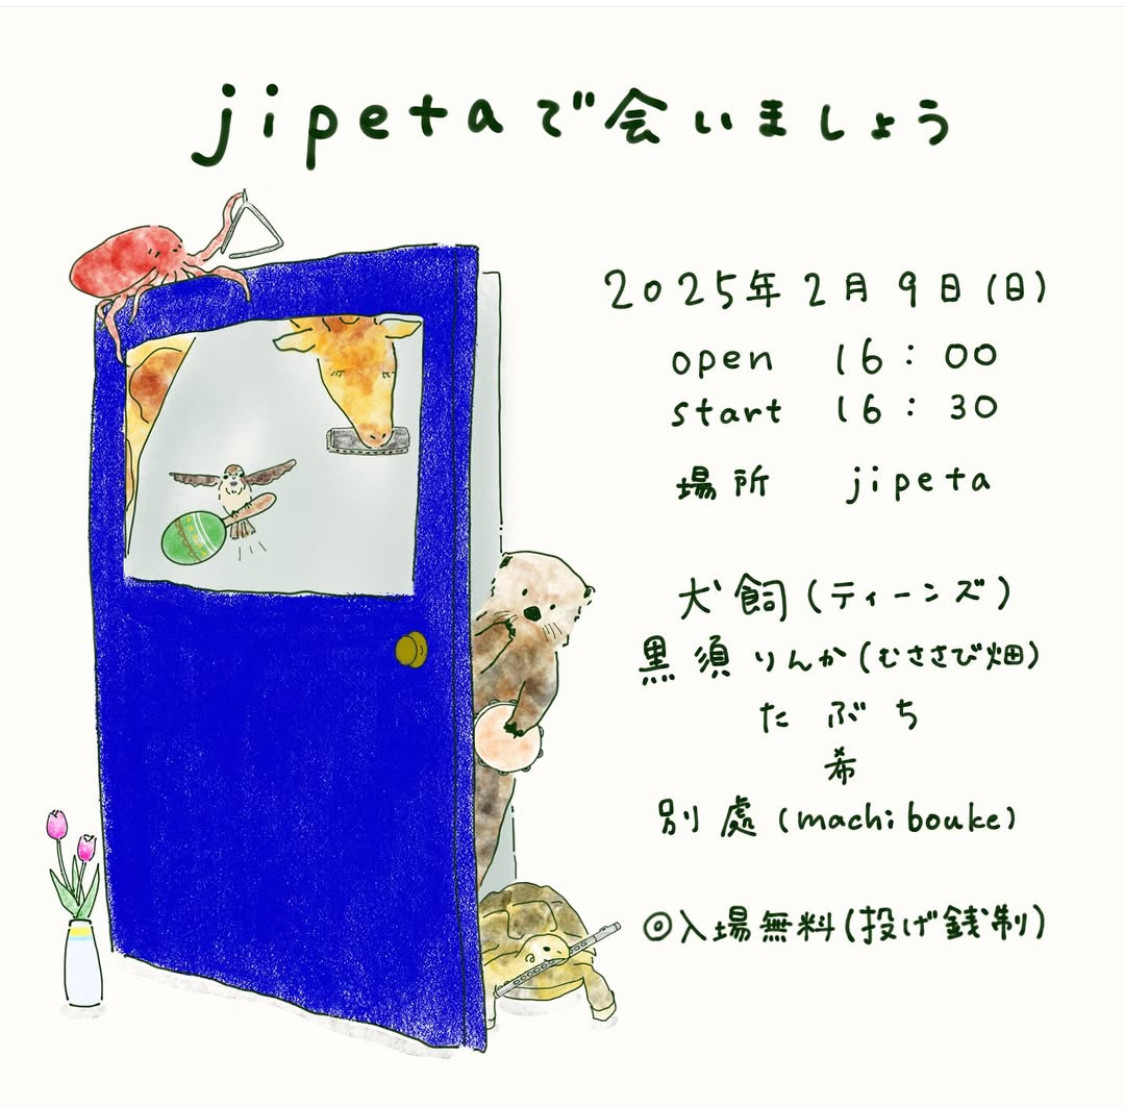 jipetaで会いましょう
2025年2月9日(日)
open 16:00
start 16:30
場所 jipeta
犬飼(ティーンズ)
黒須りんか(むささび畑)
たぶち
希
別處(machibouke)
◎入場無料(投げ銭制)